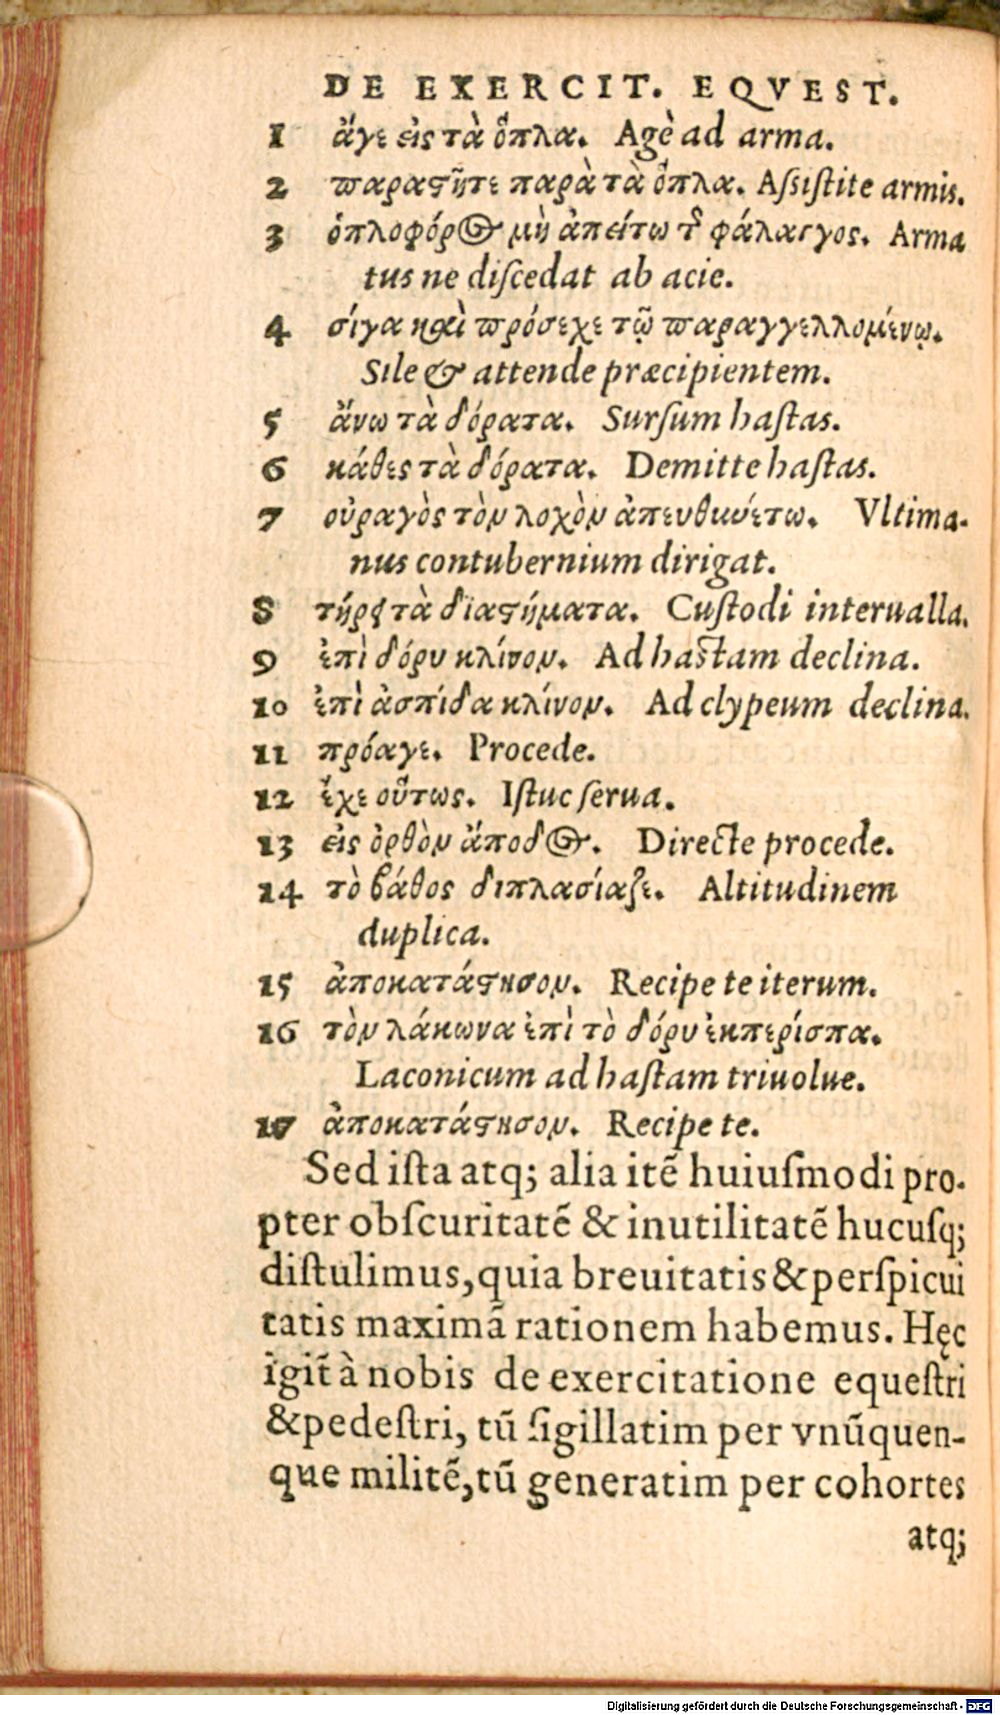 DE EXERCIT. EQVEST.
1 ἄγε εἰς τὰ ὅπλα. Agè ad arma.
2 παραστῆτε παρὰ τὰ ὅπλα. Aſsiſtite armis.
3 ὁπλοφόρος μὴ ἀπείτω τῆς φάλαγγος. Arma
tus ne diſcedat ab acie.
4 σίγα καὶ πρόσεχε τῷ παραγγελλομένῳ.
Sile & attende præcipientem.
5 ἄνω τὰ δόρατα. Surſum haſtas.
6 κάθες τὰ δόρατα. Demitte haſtas.
7 οὐραγὸς τὸν λοχὸν ἀπευθυνέτω. Vltima-
nus contubernium dirigat.
8 τήρει τὰ διαστήματα. Cuſtodi interualla.
9 ἐπὶ δόρυ κλίνον. Ad haſtam declina.
10 ἐπὶ ἀσπίδα κλίνον. Ad clypeum declina.
11 πρόαγε. Procede.
12 ἔχε οὕτως. Iſtuc ſerua.
13 εἰς ὀρθὸν ἄποδος. Directe procede.
14 τὸ βάθος διπλασίαζε. Altitudinem
duplica.
15 ἀποκατάστησον. Recipe te iterum.
16 τὸν λάκωνα ἐπὶ τὸ δόρυ ἐκπερίσπα.
Laconicum ad haſtam triuolue.
17 ἀποκατάστησον. Recipe te.
Sed iſta atq; alia itē huiuſmodi pro-
pter obſcuritatē & inutilitatē hucuſq;
diſtulimus, quia breuitatis & perſpicui
tatis maximā rationem habemus. Hęc
igit̃ à nobis de exercitatione equeſtri
& pedeſtri, tū ſigillatim per vnūquen-
que militē, tū generatim per cohortes
atq;
Digitalisierung gefördert durch die Deutsche Forschungsgemeinschaft - DFG